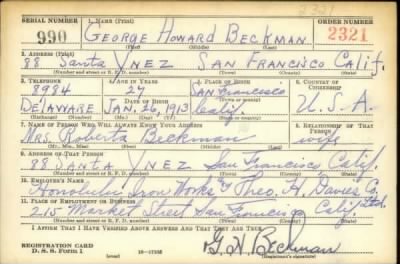 2321
SERIAL NUMBER 1. NAME (Print) ORDER NUMBER
990 GEORGE HOWARD BECKMAN 2321
(First) (Middle) (Last)
2. ADDRESS (Print)
88 Santa YNEZ SAN FRANCISCO Calif.
(Number and street or R. F. D. number) (Town) (County) (State)
3. TELEPHONE 4. AGE IN YEARS 5. PLACE OF BIRTH 6. COUNTRY OF CITIZENSHIP
8984 27 San Francisco
DELAWARE DATE OF BIRTH JAN. 26, 1913 Calif. U.S.A.
(Exchange) (Number) (Mo.) (Day) (Yr.) (State or country)
7. NAME OF PERSON WHO WILL ALWAYS KNOW YOUR ADDRESS 8. RELATIONSHIP OF THAT PERSON
Mrs. Roberta Beckman wife
(Mr., Mrs., Miss) (First) (Middle) (Last)
9. ADDRESS OF THAT PERSON
88 SANTA YNEZ San Francisco, Calif.
(Number and street or R. F. D. number) (Town) (County) (State)
10. EMPLOYER'S NAME
Honolulu Iron Works & Theo. H. Davies Co. Ltd.
11. PLACE OF EMPLOYMENT OR BUSINESS
215 Market Street San Francisco Calif.
(Number and street or R. F. D. number) (Town) (County) (State)
I AFFIRM THAT I HAVE VERIFIED ABOVE ANSWERS AND THAT THEY ARE TRUE.
G. H. Beckman
REGISTRATION CARD
D. S. S. FORM 1 (over) (Registrant's signature)